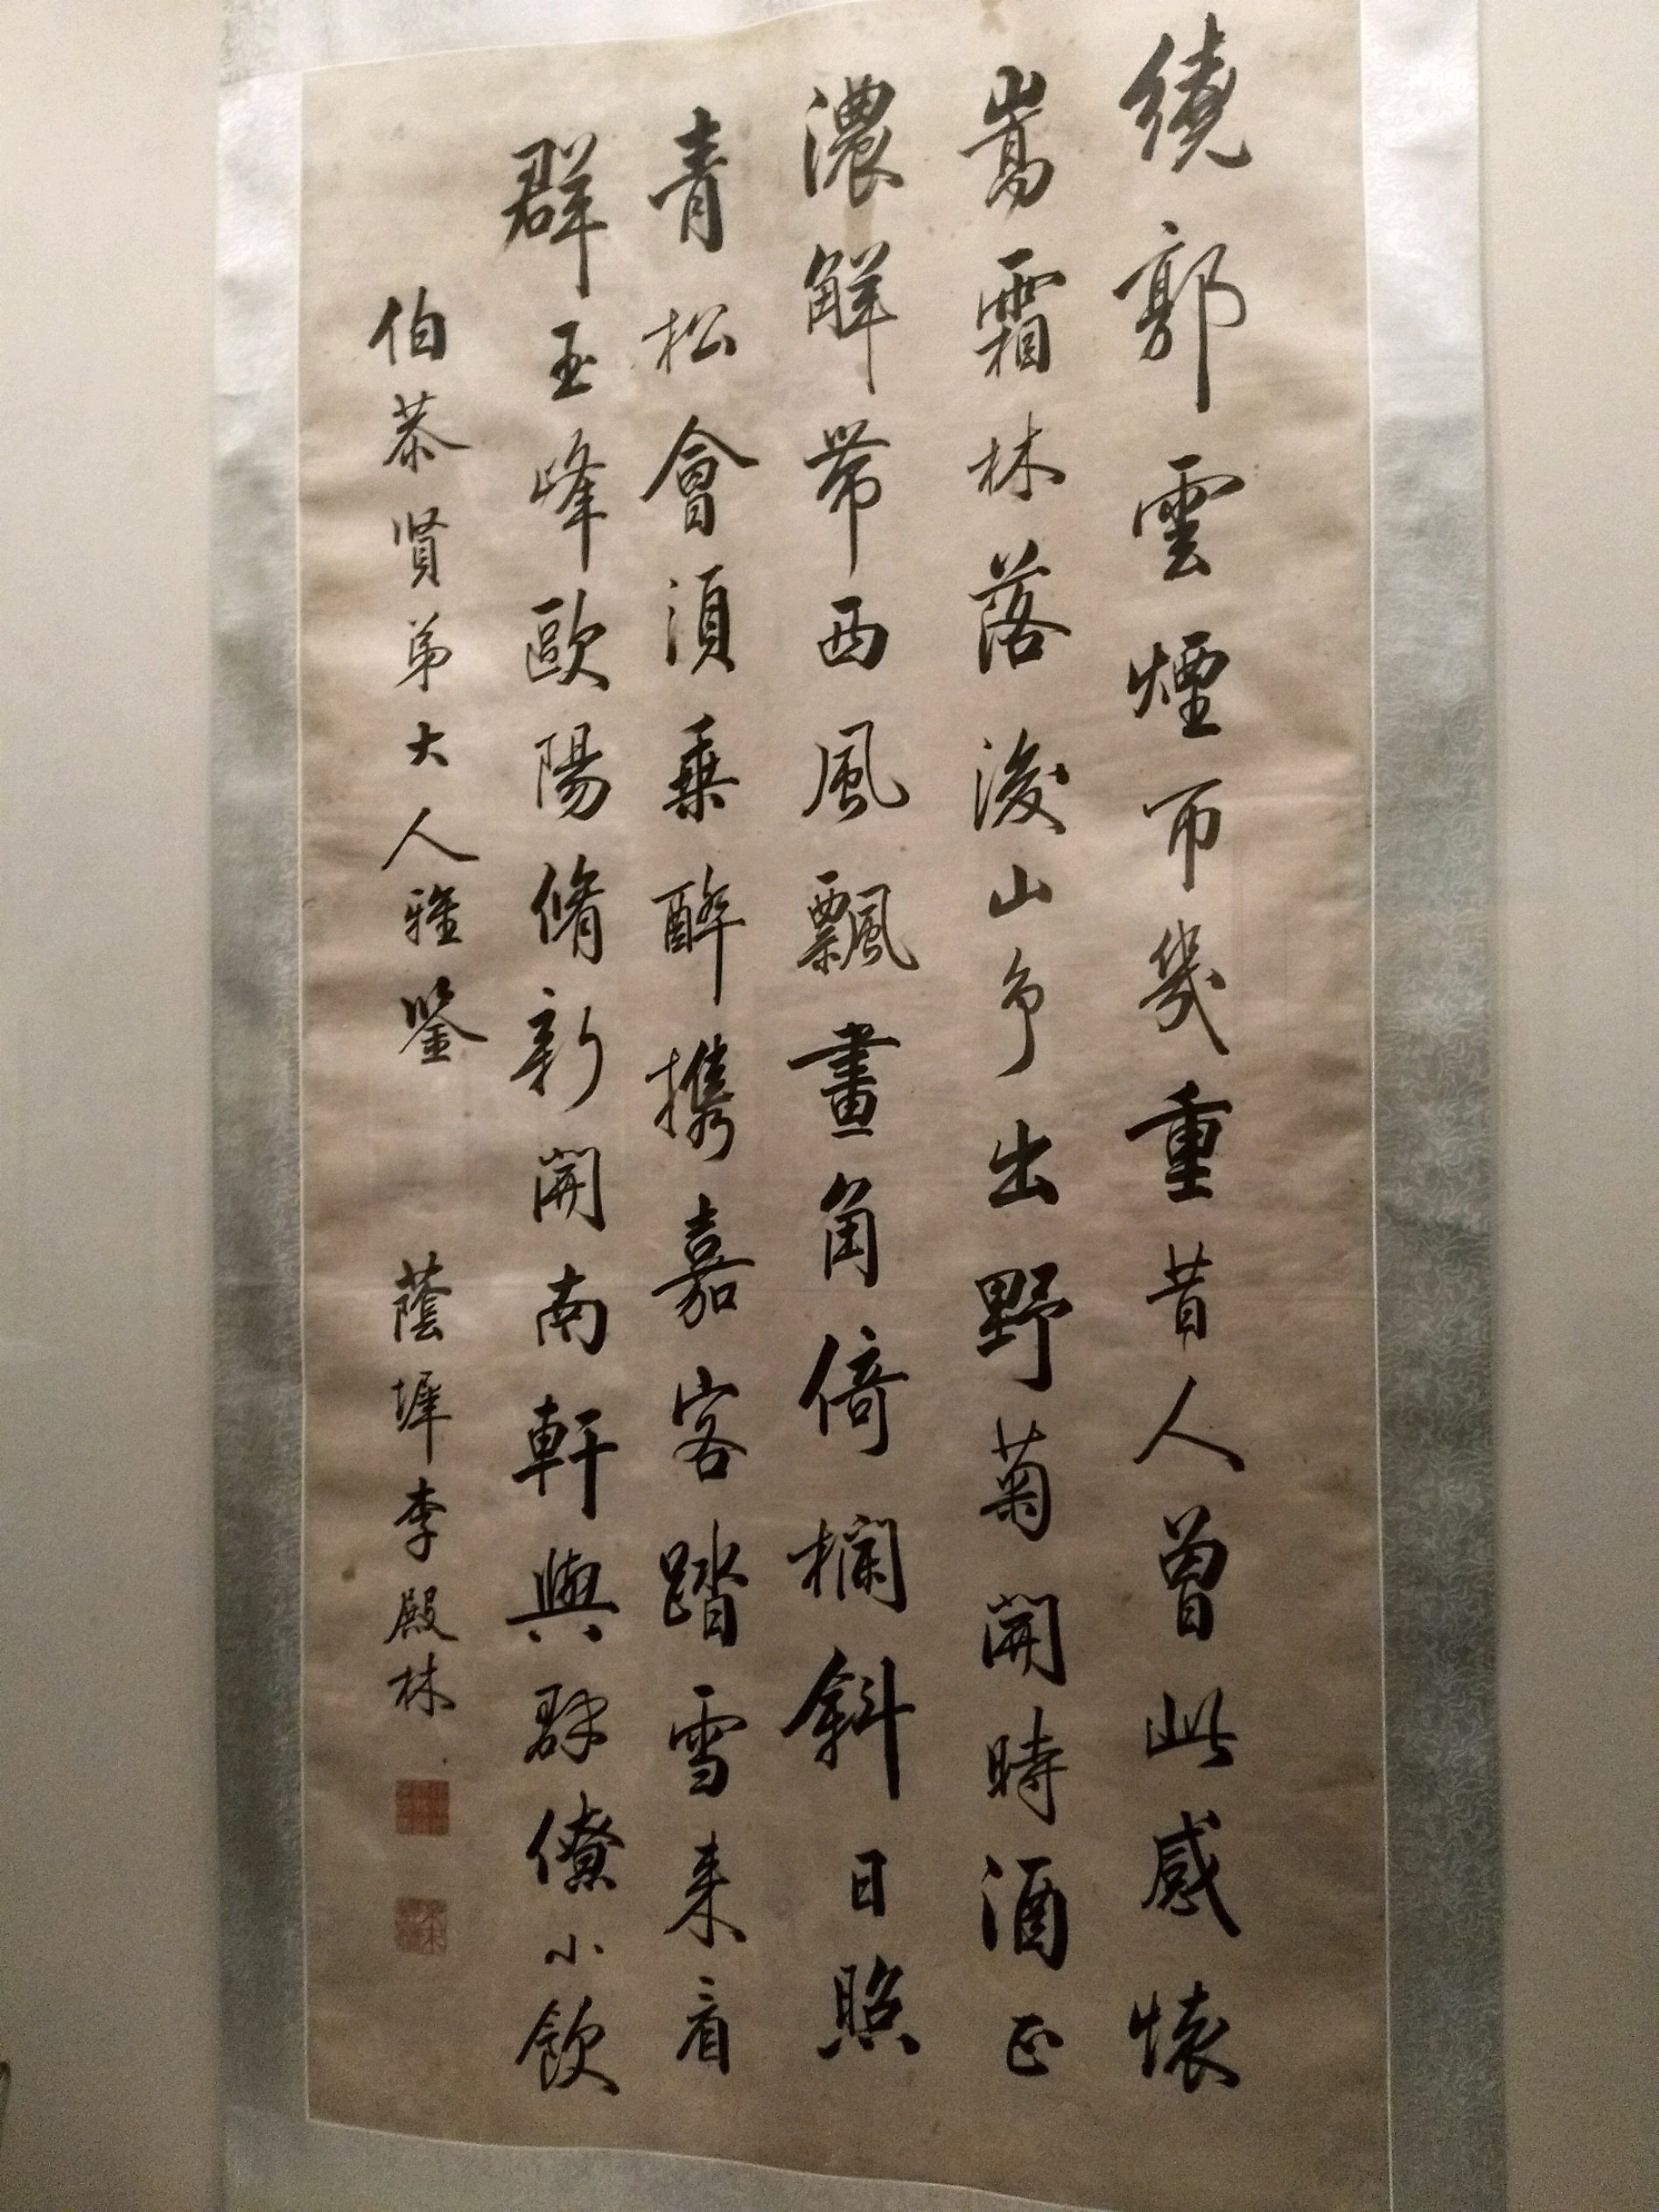 繞郭雲煙帀幾重昔人曾此感懷
嵩霜林落後山爭出野菊開時酒正
濃解帶西風飄畫角倚欄斜日照
青松會須乘醉攜嘉客踏雪來看
群玉峰歐陽脩新開南軒與群僚小飲
伯恭賢弟大人雅鑒
蔭墀李殿林